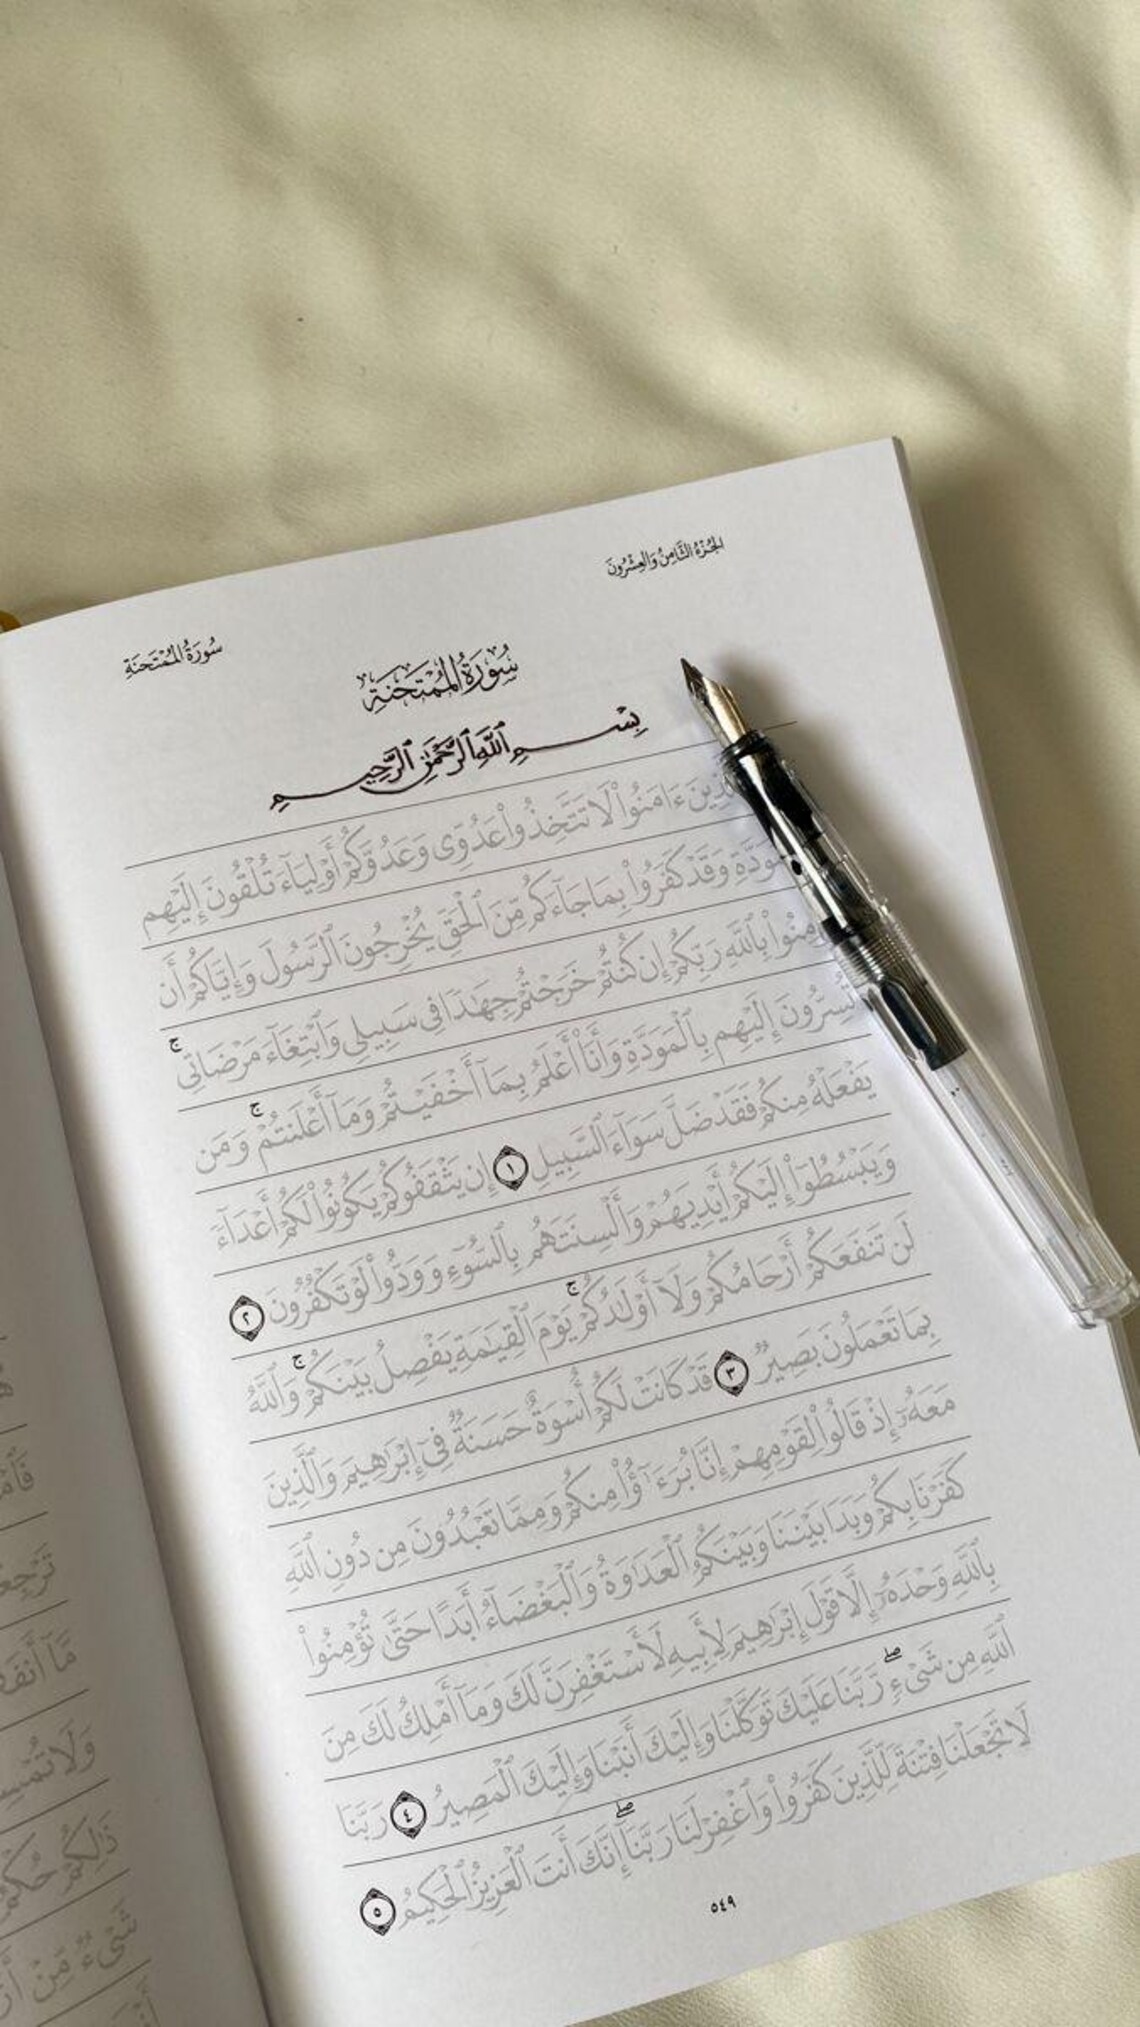 الجُزْءُ الثَّامِنُ وَالعِشْرُونَ
سُورَةُ المُمْتَحنَةِ
سُورَةُ المُمْتَحنَةِ
بِسْمِ ٱللَّهِ ٱلرَّحْمَٰنِ ٱلرَّحِيمِ
ءَامَنُوا۟ لَا تَتَّخِذُوا۟ عَدُوِّى وَعَدُوَّكُمْ أَوْلِيَآءَ تُلْقُونَ إِلَيْهِم
وَقَدْ كَفَرُوا۟ بِمَا جَآءَكُم مِّنَ ٱلْحَقِّ يُخْرِجُونَ ٱلرَّسُولَ وَإِيَّاكُمْ أَن
بِٱللَّهِ رَبِّكُمْ إِن كُنتُمْ خَرَجْتُمْ جِهَٰدًا فِى سَبِيلِى وَٱبْتِغَآءَ مَرْضَاتِى ۚ
تُسِرُّونَ إِلَيْهِم بِٱلْمَوَدَّةِ وَأَنَا۠ أَعْلَمُ بِمَآ أَخْفَيْتُمْ وَمَآ أَعْلَنتُمْ ۚ وَمَن
يَفْعَلْهُ مِنكُمْ فَقَدْ ضَلَّ سَوَآءَ ٱلسَّبِيلِ ١ إِن يَثْقَفُوكُمْ يَكُونُوا۟ لَكُمْ أَعْدَآءً
وَيَبْسُطُوٓا۟ إِلَيْكُمْ أَيْدِيَهُمْ وَأَلْسِنَتَهُم بِٱلسُّوٓءِ وَوَدُّوا۟ لَوْ تَكْفُرُونَ ٢
لَن تَنفَعَكُمْ أَرْحَامُكُمْ وَلَآ أَوْلَٰدُكُمْ ۚ يَوْمَ ٱلْقِيَٰمَةِ يَفْصِلُ بَيْنَكُمْ ۚ وَٱللَّهُ
بِمَا تَعْمَلُونَ بَصِيرٌ ٣ قَدْ كَانَتْ لَكُمْ أُسْوَةٌ حَسَنَةٌ فِىٓ إِبْرَٰهِيمَ وَٱلَّذِينَ
مَعَهُۥٓ إِذْ قَالُوا۟ لِقَوْمِهِمْ إِنَّا بُرَءَٰٓؤُا۟ مِنكُمْ وَمِمَّا تَعْبُدُونَ مِن دُونِ ٱللَّهِ
كَفَرْنَا بِكُمْ وَبَدَا بَيْنَنَا وَبَيْنَكُمُ ٱلْعَدَٰوَةُ وَٱلْبَغْضَآءُ أَبَدًا حَتَّىٰ تُؤْمِنُوا۟
بِٱللَّهِ وَحْدَهُۥٓ إِلَّا قَوْلَ إِبْرَٰهِيمَ لِأَبِيهِ لَأَسْتَغْفِرَنَّ لَكَ وَمَآ أَمْلِكُ لَكَ مِنَ
ٱللَّهِ مِن شَىْءٍ ۖ رَّبَّنَا عَلَيْكَ تَوَكَّلْنَا وَإِلَيْكَ أَنَبْنَا وَإِلَيْكَ ٱلْمَصِيرُ ٤ رَبَّنَا
لَا تَجْعَلْنَا فِتْنَةً لِّلَّذِينَ كَفَرُوا۟ وَٱغْفِرْ لَنَا رَبَّنَآ ۖ إِنَّكَ أَنتَ ٱلْعَزِيزُ ٱلْحَكِيمُ ٥
٥٤٩
تَرْجِعُ
مَّآ أَنفَقُ
ذَٰلِكُمْ حُكْمُ
شَىْءٌ مِّنْ